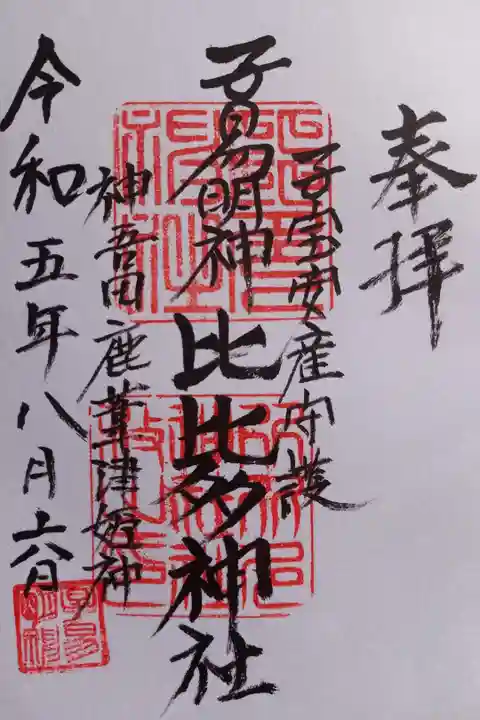 奉拝
子宝安産守護
子易明神 比比多神社
神吾田鹿葦津姫神
令和五年八月十六日